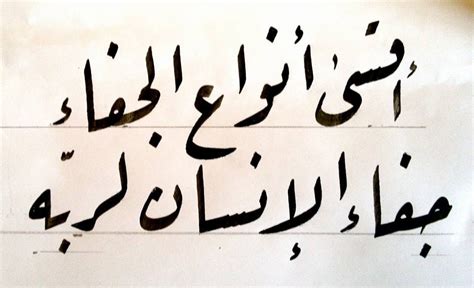 أقسى أنواع الجفاء
جفاء الإنسان لربّه